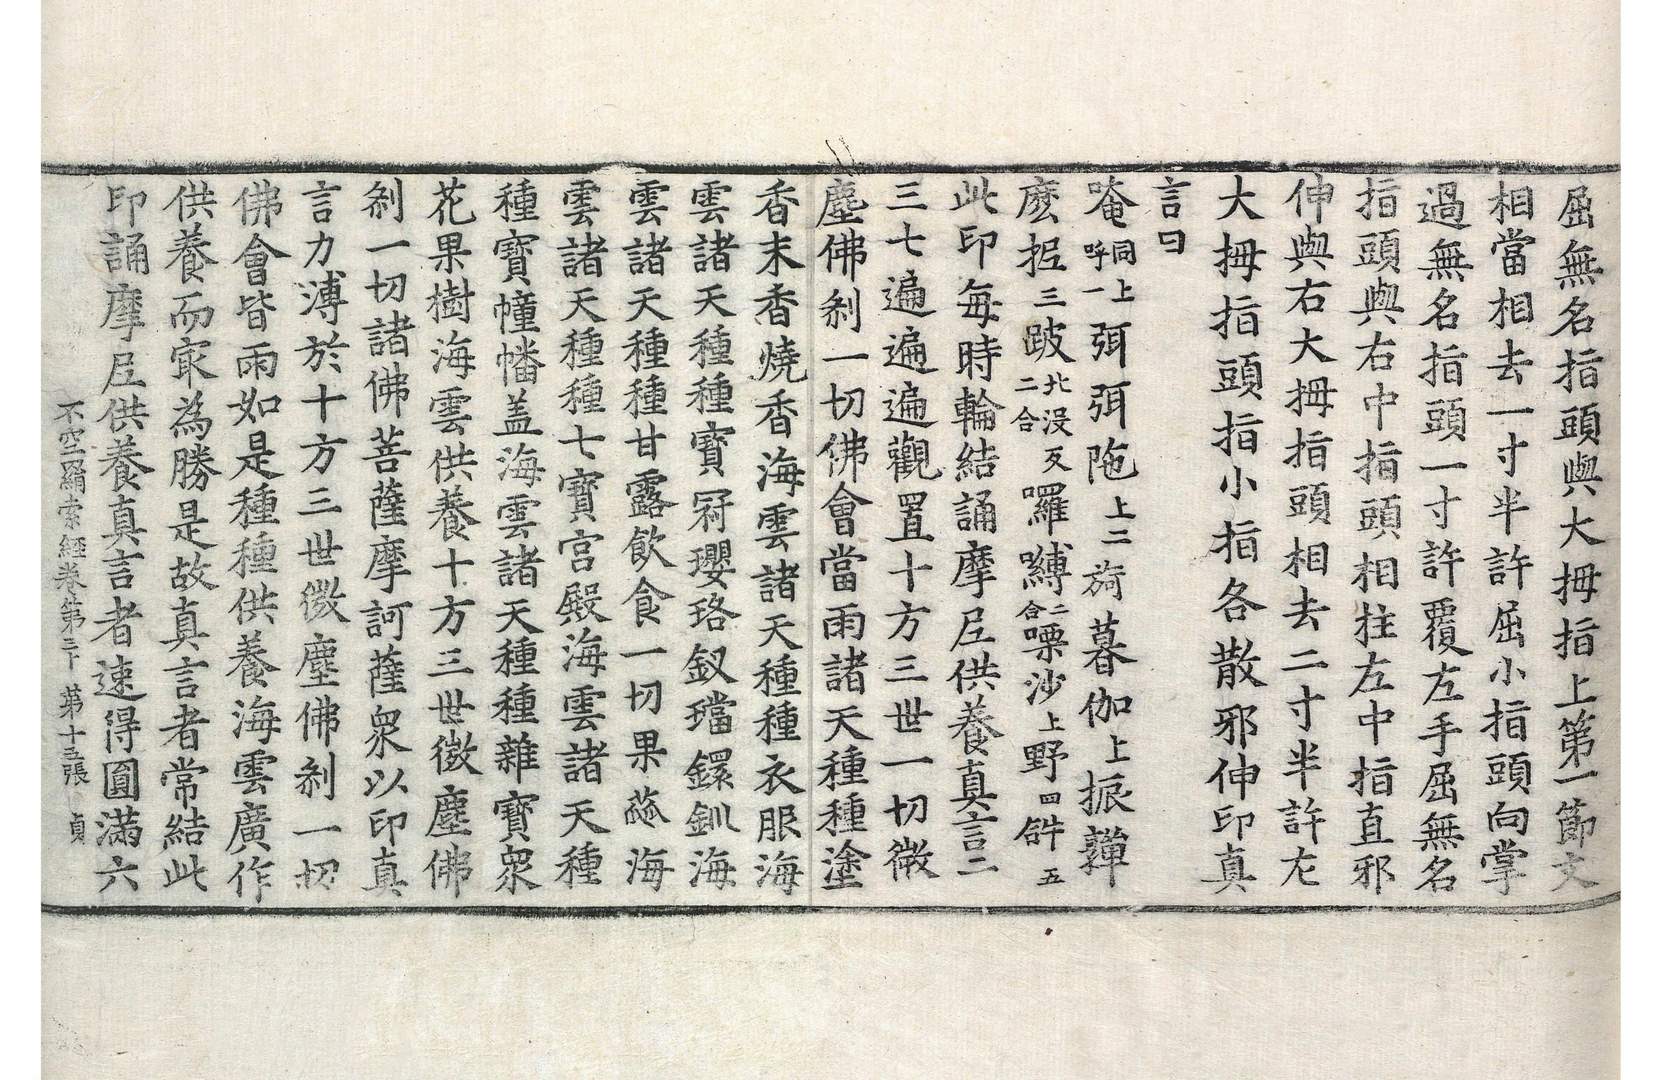 屈無名指頭與大拇指上第一節文
相當相去一寸半許屈小指頭向掌
過無名指頭一寸許覆左手屈無名
指頭與右中指頭相拄左中指直邪
伸與右大拇指頭相去二寸半許左
大拇指頭指小指各散邪伸印真
言曰
唵同上呼一弭弭陁上二㫊暮伽上振嚲
麽抳三跛北没反二合囉嚩二合㗚沙上野四𤙖五
此印每時輪結誦摩尼供養真言二
三七遍遍遍觀置十方三世一切微
塵佛剎一切佛會當雨諸天種種塗
香末香燒香海雲諸天種種衣服海
雲諸天種種寶冠瓔珞釵璫鐶釧海
雲諸天種種甘露飲食一切果蓏海
雲諸天種種七寶宮殿海雲諸天種
種寶幢幡盖海雲諸天種種雜寶衆
花果樹海雲供養十方三世微塵佛
剎一切諸佛菩薩摩訶薩衆以印真
言力溥於十方三世微塵佛剎一切
佛會皆雨如是種種供養海雲廣作
供養而㝡為勝是故真言者常結此
印誦摩尼供養真言者速得圓滿六
不空羂索經卷第三十 第十五張 貞